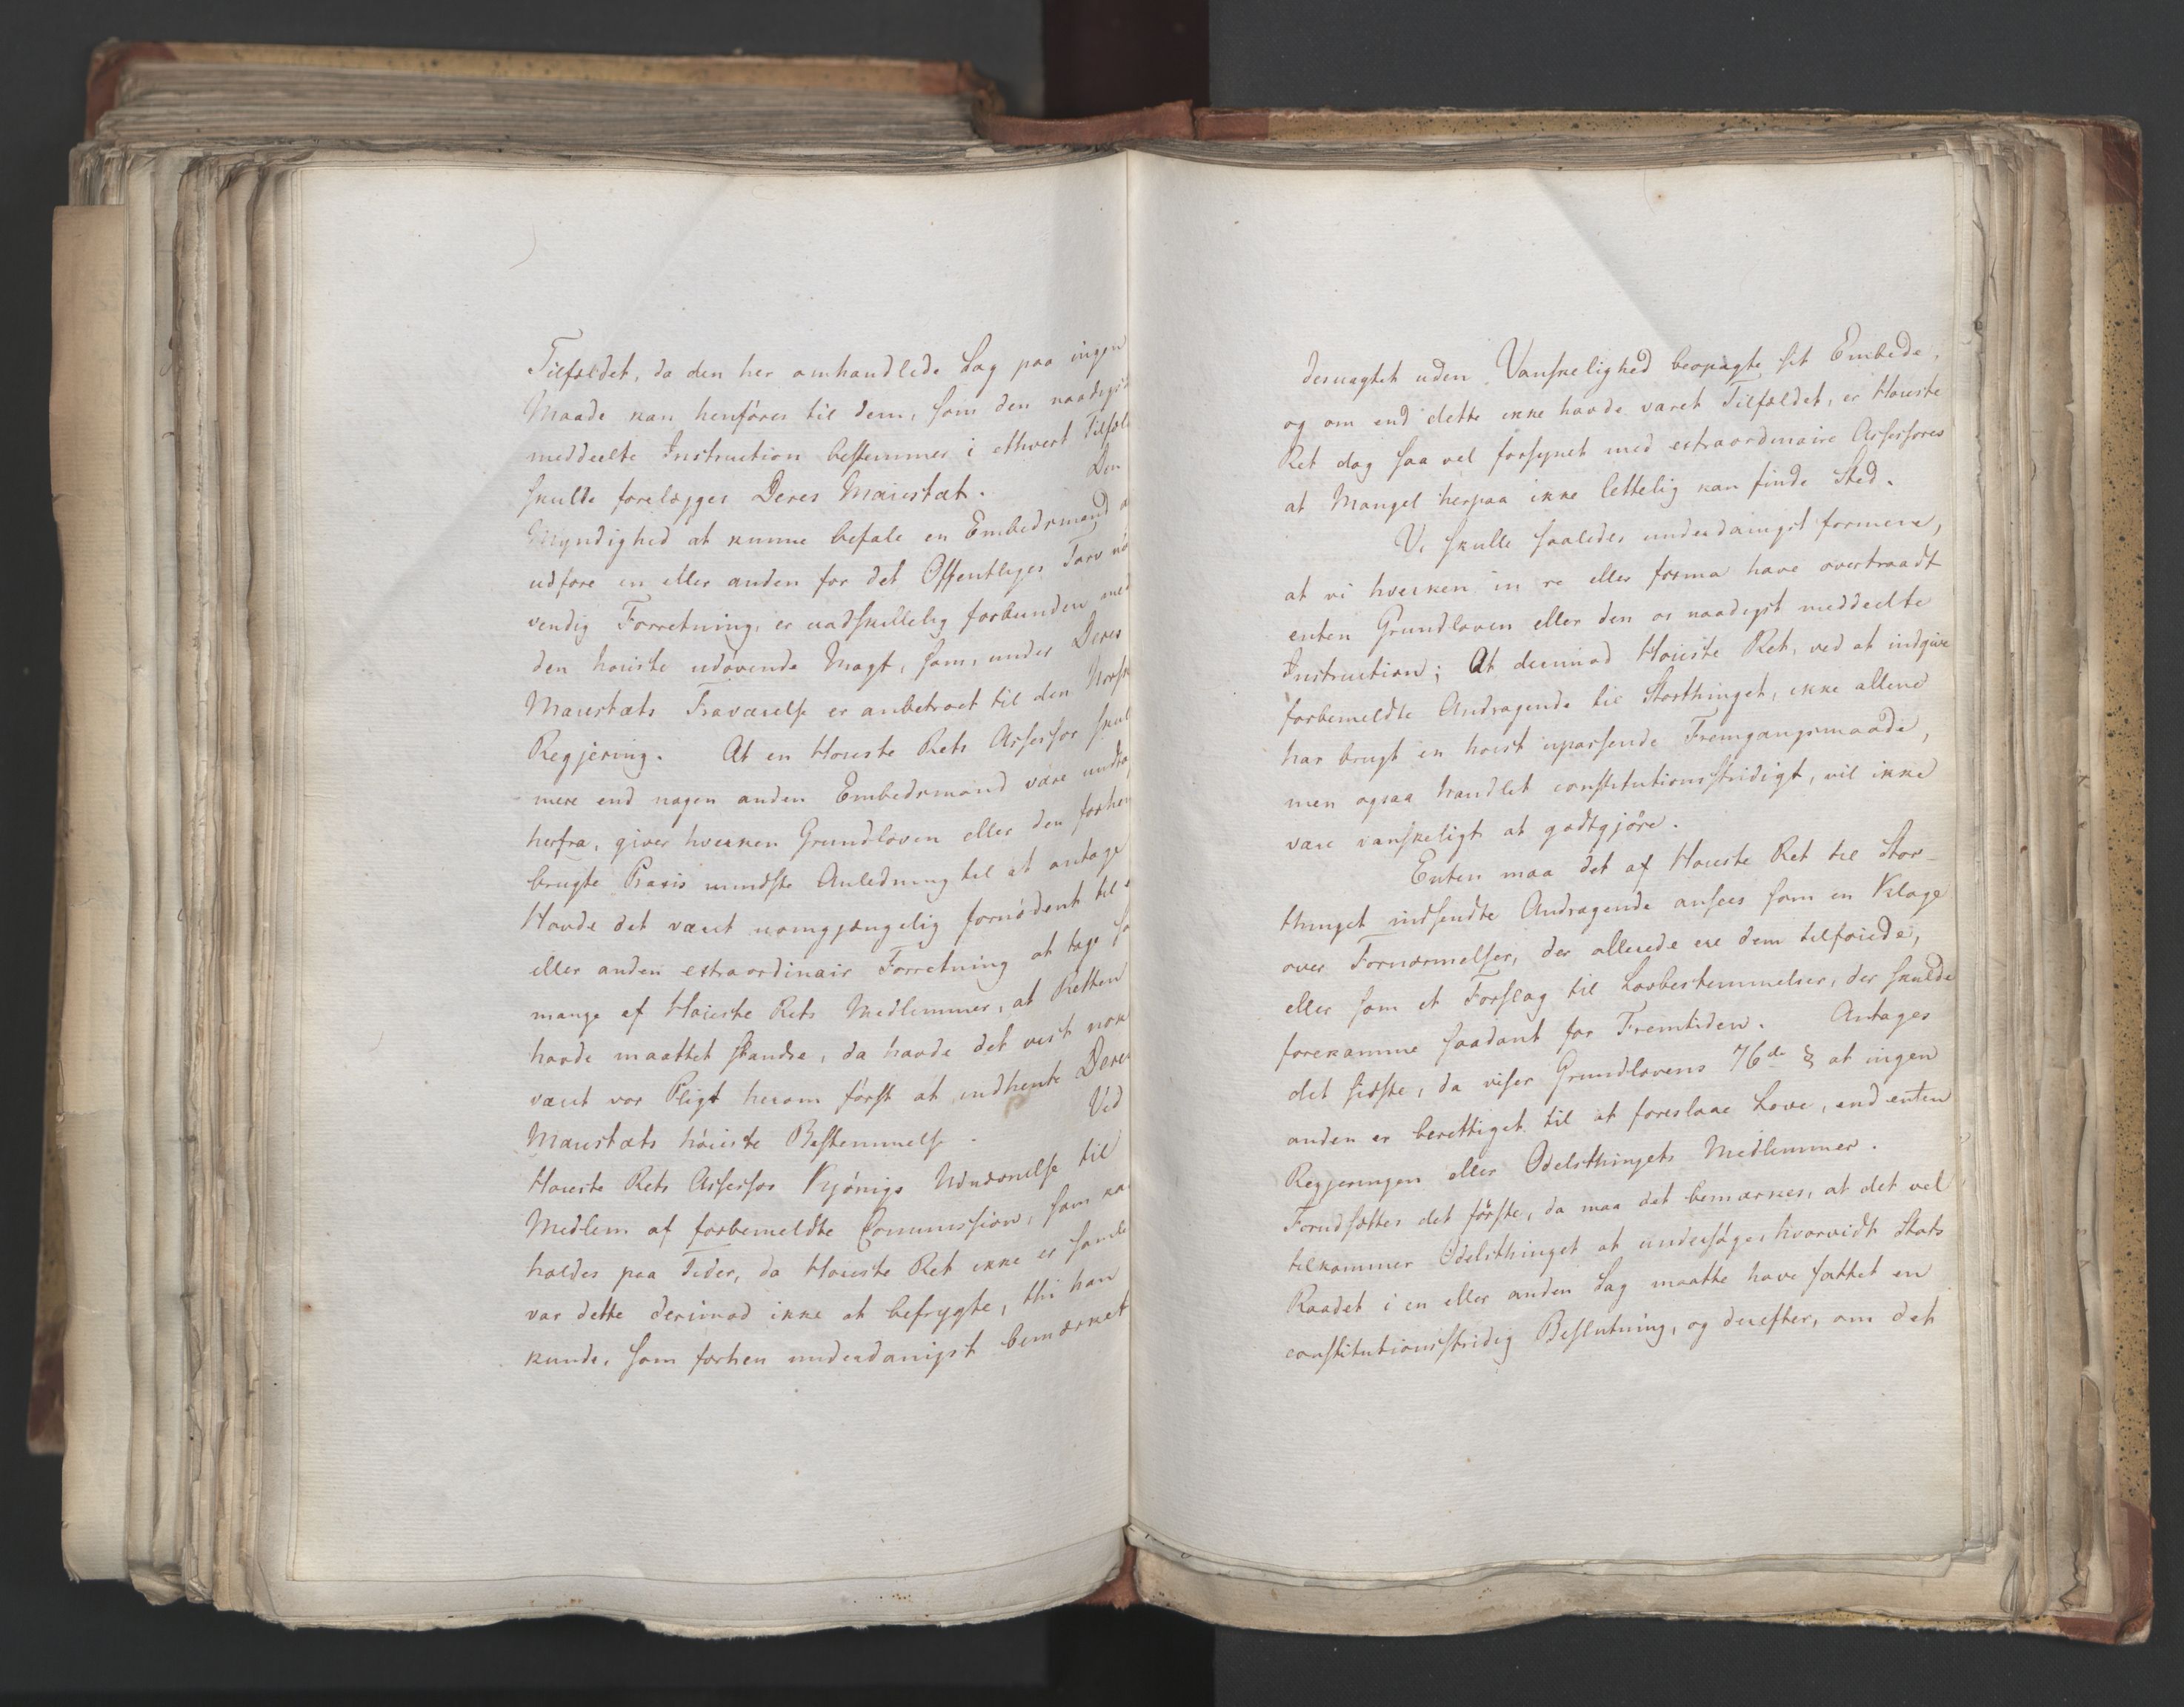 Tilfældet, da den her omhandlede Sag paa ingen
Maade kan henføres til dem, som den naadigst
meddeelte Instruction bestemmer i ethvert Tilfæld
skulde forelægges Deres Maiestæt. Den
Myndighed at kunne befale en Embedsmand a
udføre en eller anden for det Offentliges Tarv nød
vendig Forretning, er uadskillelig forbunden med
den høieste udøvende Magt, som, under Deres
Maiestæts Fraværelse er anbetroet til den Norske
Regjering. At en Høieste Rets Assessor skul
mere end nogen anden Embedsmand være undta
herfra, giver hverken Grundloven eller den forhen
brugte Praxis mindste Anledning til at antage
Havde det været uomgjængelig fornødent til e
eller anden extraordinair Forretning at tage so
mange af Høieste Rets Medlemmer, at Retten
havde maattet standse, da havde det vist nok
været vor Pligt herom først at indhente Deres
Maiestæts høieste Bestemmelse. Ved
Høieste Rets Assessor Kyönigs Udnævnelse til
Medlem af forbemeldte Commission, som ka
holdes paa Tider, da Høieste Ret ikke er samle
var dette derimod ikke at befrygte, thi han
kunde, som forhen underdanigst bemærket
desuagtet uden Vanskelighed beopagte sit Embede,
og om end dette ikke havde været Tilfældet, er Høieste
Ret dog saa vel forsynet med extraordinaire Assessores
at Mangel herpaa ikke lettelig kan finde Sted.
Vi skulle saaledes underdanigst formene,
at vi hverken in re eller forma have overtraadt
enten Grundloven eller den os naadigst meddeelte
Instruction; At derimod Høieste Ret, ved at indgive
forbemeldte Andragende til Storthinget, ikke allene
har brugt en høist upassende Fremgangsmaade,
men ogsaa handlet constitutionsstridigt, vil ikke
være vanskeligt at godtgjøre.
Enten maa det af Høieste Ret til Stor-
thinget indsendte Andragende ansees som en Klage
over Fornærmelser, der allerede ere dem tilføiede,
eller som et Forslag til Lovbestemmelser, der skulde
forekomme saadant for Fremtiden. Antages
det sidste, da viser Grundlovens 76de § at ingen
anden er berettiget til at foreslaae Love, end enten
Regjeringen eller Odelsthingets Medlemmer.
Forudsættes det første, da maa det bemærkes, at det vel
tilkommer Odelsthinget at undersøge, hvorvidt Stats
Raadet i en eller anden Sag maatte have fattet en
constitutionsstridig Beslutning, og derefter, om det